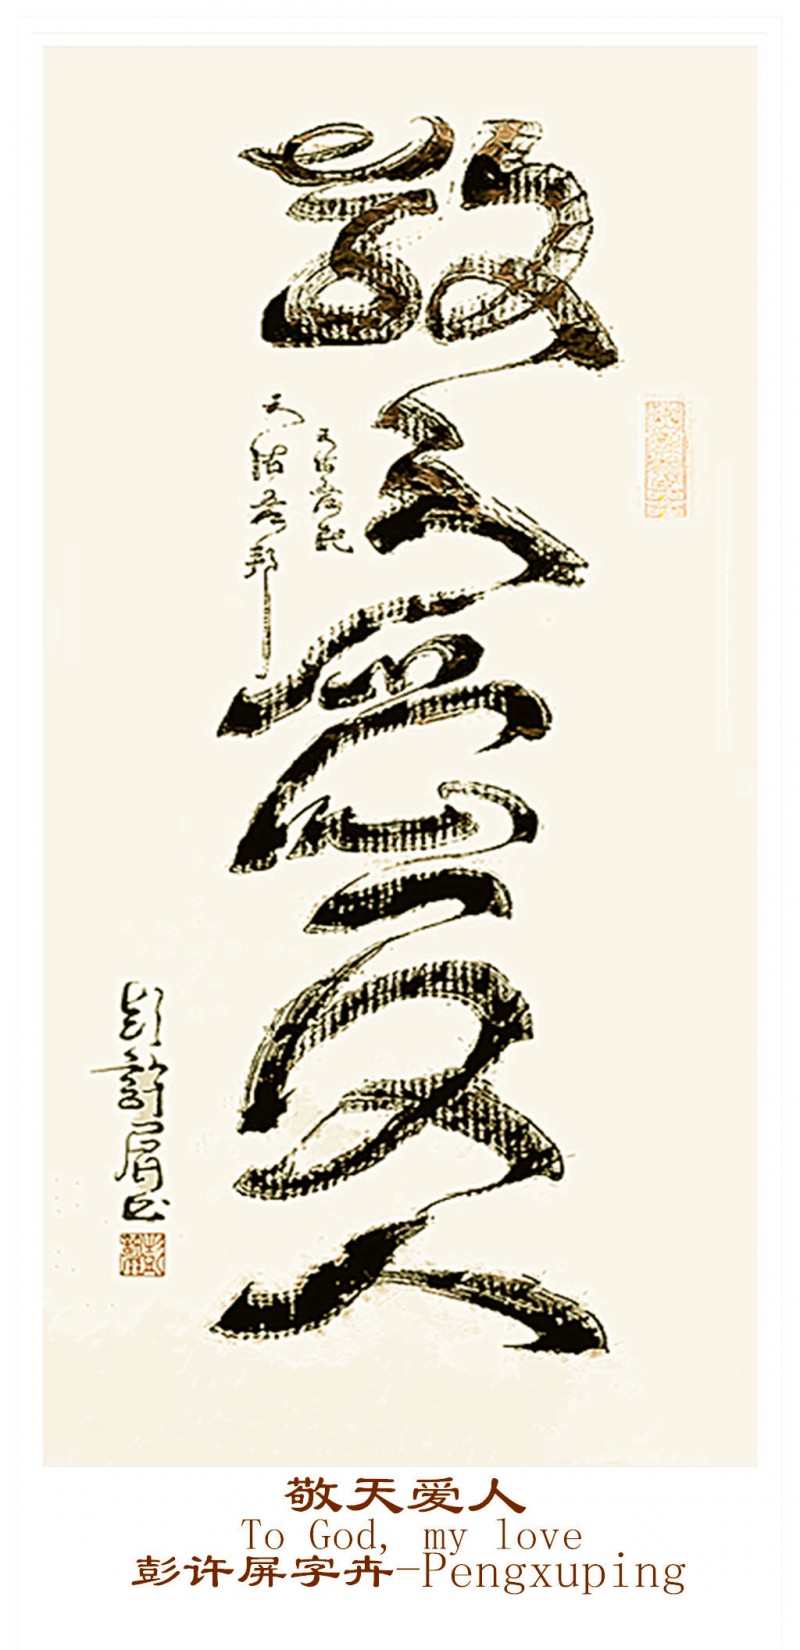 敬天愛人
天佑吾
天佑吾邦
彭許屏书
敬天爱人
To God, my love
彭许屏字卉-Pengxuping